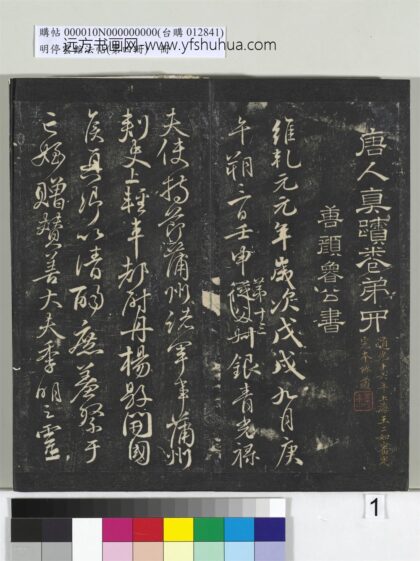 購帖 000010N000000000(台購 012841)
远方书画网-www.yfshuhua.com
明停雲館法帖(第四冊) 冊
唐人真蹟卷弟四
善顏魯公書
維乾元元年歲次戊戌九月庚
午朔三日壬申第十三叔銀青光祿
夫使持節蒲州諸軍事蒲州
刺史上輕車都尉丹楊縣開國
侯真卿以清酌庶羞祭于
亡姪贈贊善大夫季明之靈
1